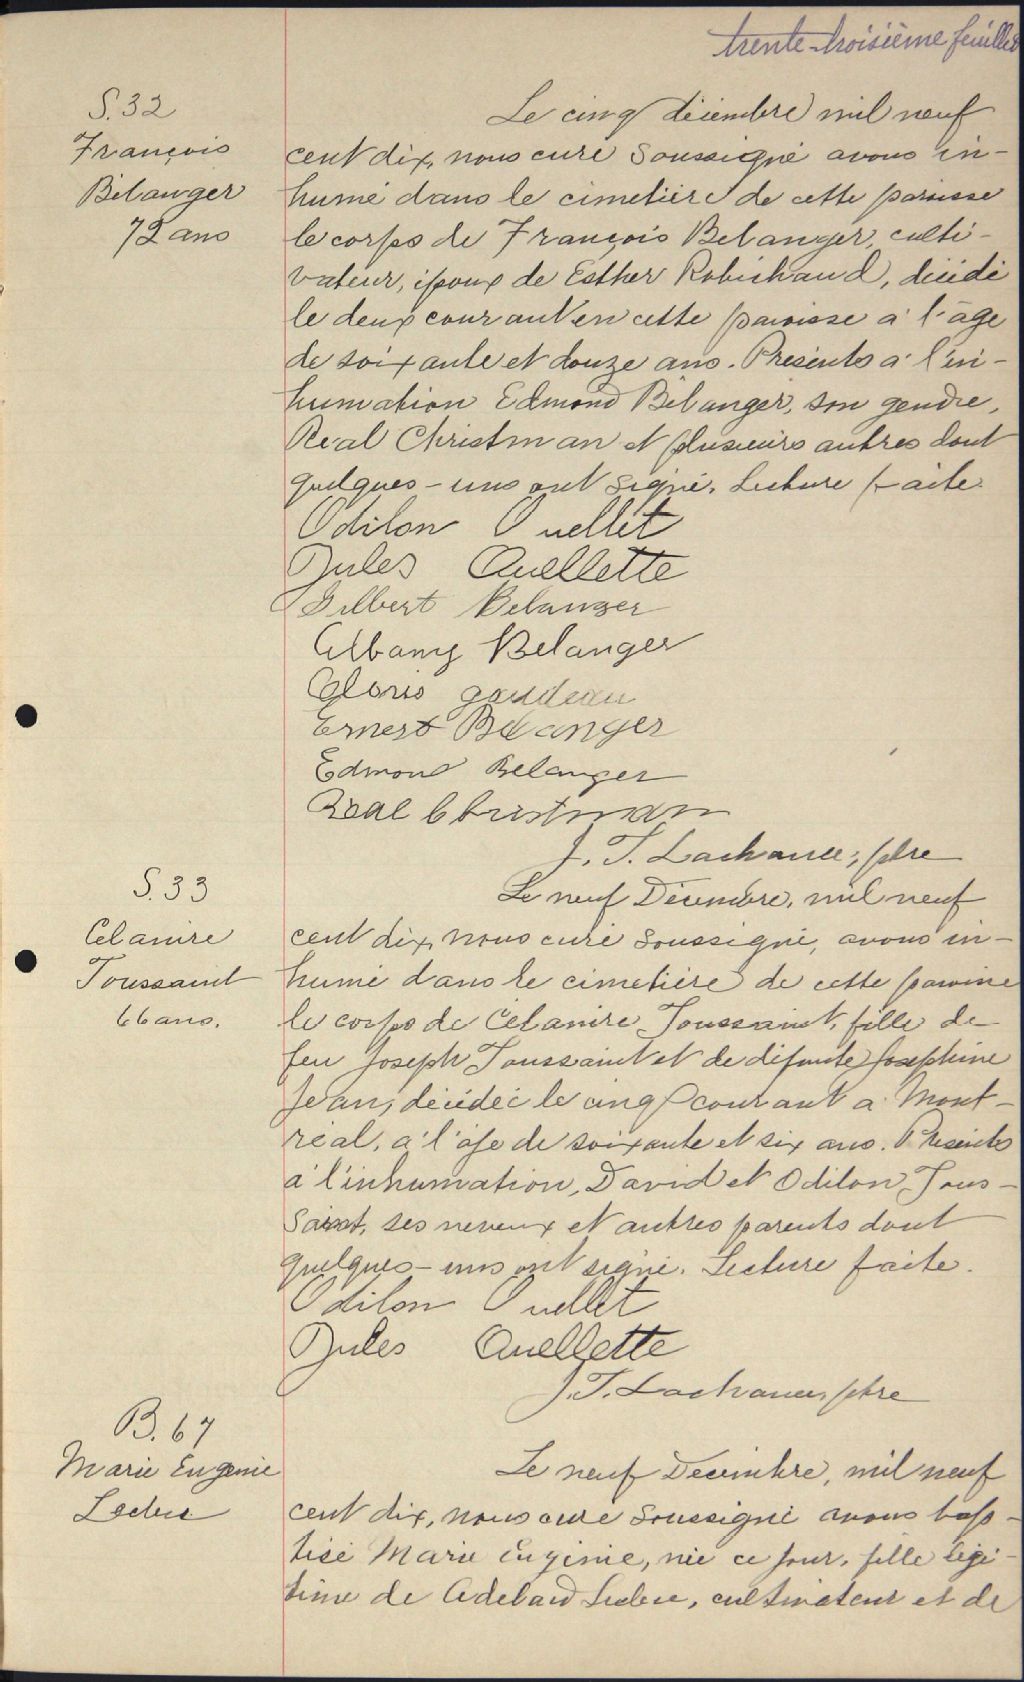 trente-troisième feuillet
S. 32
François
Bélanger
72 ans
Le cinq décembre mil neuf
cent dix, nous curé soussigné avons in-
humé dans le cimetière de cette paroisse
le corps de François Belanger, culti-
vateur, époux de Esther Robichaud, décédé
le deux courant en cette paroisse à l'âge
de soixante et douze ans. Présents à l'in-
humation Edmond Bélanger, son gendre,
Réal Christman et plusieurs autres dont
quelques-uns ont signé. Lecture faite.
Odilon Ouellet
Jules Ouellette
Gilbert Belanger
Albany Belanger
gaudreau
Ernest Bélanger
Edmond Belanger
Real Christman
J. T. Lachance, ptre
S. 33
Célanire
Toussaint
66 ans.
Le neuf Décembre, mil neuf
cent dix, nous curé soussigné, avons in-
humé dans le cimetière de cette paroisse
le corps de Célanire Toussaint, fille de
feu Joseph Toussaint et de défunte Joséphine
Jean, décédée le cinq courant à Mont-
réal, à l'âge de soixante et six ans. Présents
à l'inhumation, David et Odilon Tous-
saint, ses neveux et autres parents dont
quelques-uns ont signé. Lecture faite.
Odilon Ouellet
Jules Ouellette
J. T. Lachance, ptre
B. 67
Marie Eugenie
Leclerc
Le neuf Décembre, mil neuf
cent dix, nous curé soussigné avons bap-
tisé Marie Eugénie, née ce jour, fille légi-
time de Adelard Leclerc, cultivateur et de